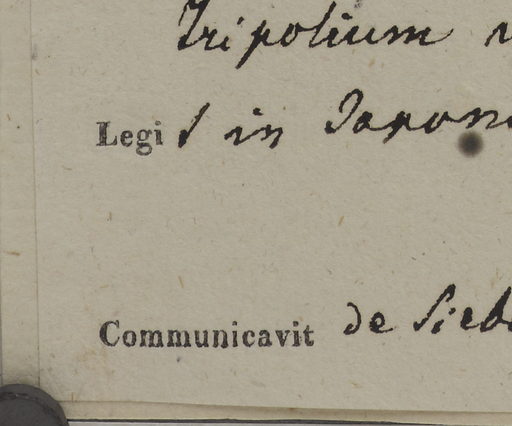 Tripolium
Legit in Japon
Communicavit de Sieb